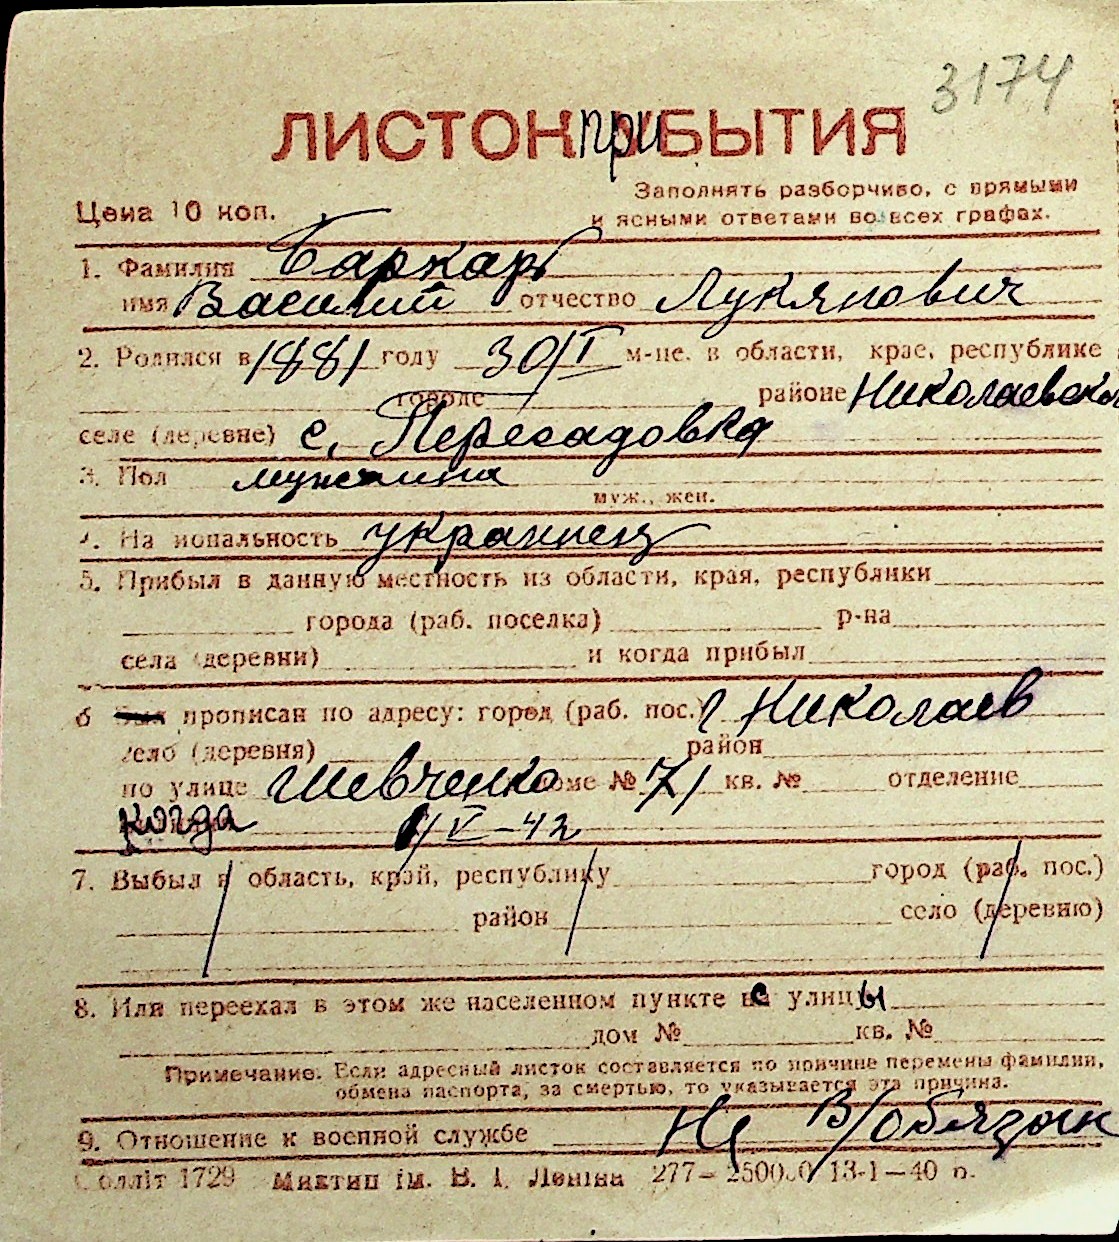 3174
ЛИСТОК при БЫТИЯ
Цена 10 коп.
Заполнять разборчиво, с прямыми
и ясными ответами во всех графах.
1. Фамилия Баркарь
имя Василий отчество Лукянович
2. Родился в 1881 году 30/I м-це. в области, крае, республике
городе районе Николаевск
селе (деревне) с. Пересадовка
3. Пол мужчина
муж., жен.
На иональность украинец
5. Прибыл в данную местность из области, края, республики
города (раб. поселка) р-на
села (деревни) и когда прибыл
6 прописан по адресу: город (раб. пос.) г Николаев
село (деревня) район
по улице Шевченко доме № 71 кв. № отделение
когда 1/V-42
7. Выбыл в область, край, республику город (раб. пос.)
район село (деревню)
8. Или переехал в этом же населенном пункте с улицы
дом № кв. №
Примечание. Если адресный листок составляется по причине перемены фамилии,
обмена паспорта, за смертью, то указывается эта причина.
9. Отношение к военной службе Не в/обязан
Облліт 1729 Миктип ім. В. І. Леніна 277–250000 13-1–40 р.